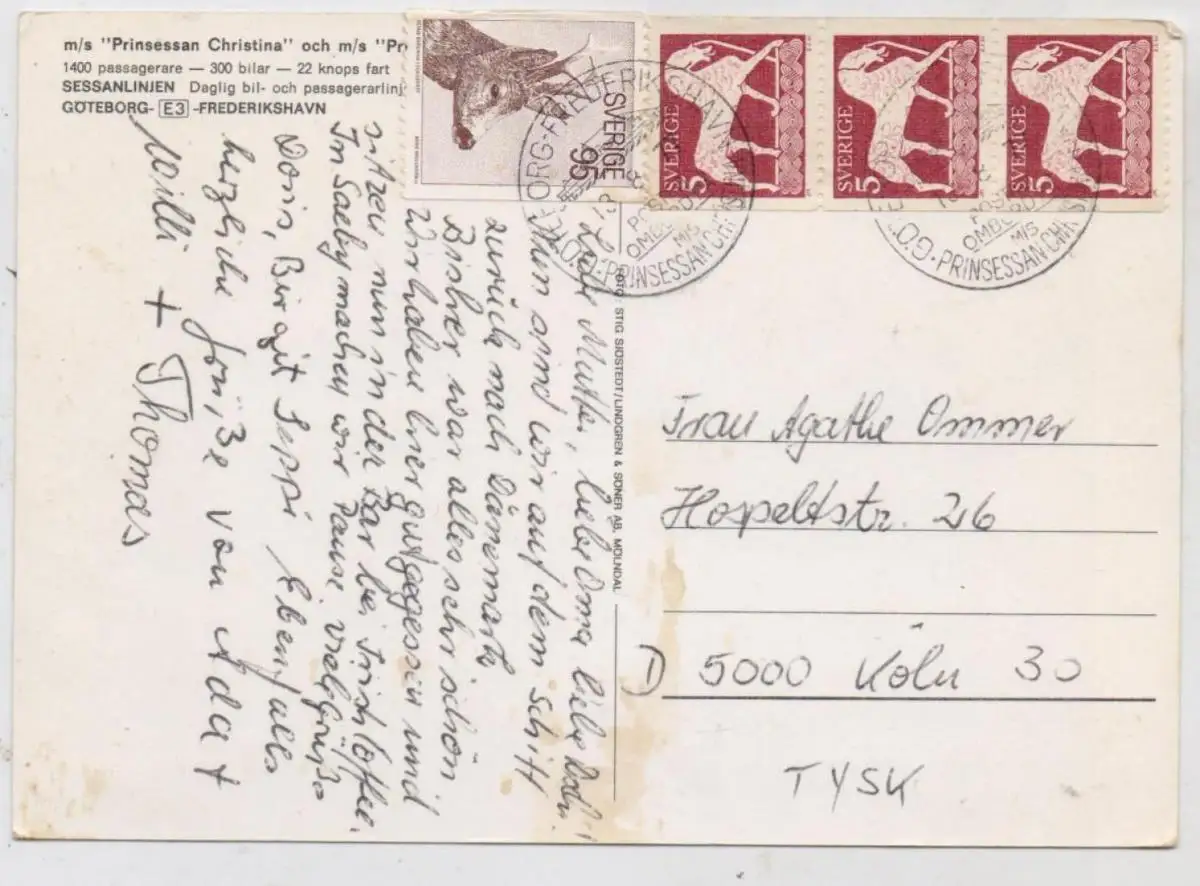 m/s "Prinsessan Christina" och m/s "Pr
1400 passagerare — 300 bilar — 22 knops fart
SESSANLINJEN Daglig bil- och passagerarlinj
GÖTEBORG- E3 -FREDERIKSHAVN
SVERIGE 95
SVERIGE 5
SVERIGE 5
SVERIGE 5
GÖTEBORG-FREDERIKSHAVN
POST
OMBORD
M/S
PRINSESSAN CHRISTINA
POST
OMBORD
M/S
PRINSESSAN CHRISTINA
Liebe Mutter, liebe Oma liebe
Nun sind wir auf dem Schiff
zurück nach Dänemark
Bisher war alles sehr schön
Wir haben hier gut gegessen und
sitzen nun in der Bar bei Irish Coffee.
In Saeby machen wir Pause. Viele Grüße
Doris, Birgit Seppi Ebenfalls
herzliche Grüße von Ada +
Willi + Thomas
FOTO: STIG SJÖSTEDT/LINDGREN & SÖNER AB, MÖLNDAL
Frau Agathe Ommer
Hospeltstr. 26
D 5000 Köln 30
TYSK